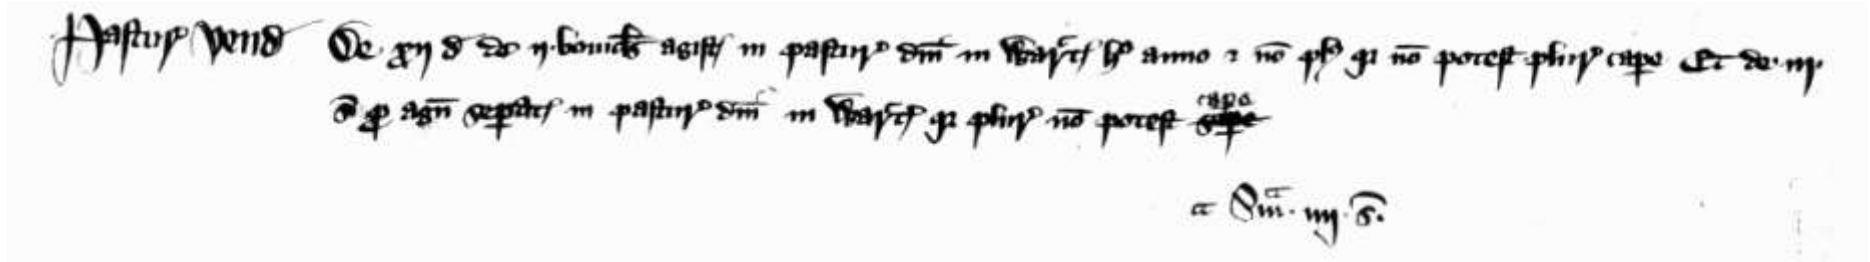 Pastur' vend' De xij d' de ij bouic'lis agist' in pastur' dni' in War't' h' anno ⁊ no' pl' q' no' potest plur' cape Et de iij
s' p' agn' sepat' in pastur' dni' in War't' q' plur' no' potest cape
a Sma iiij s'.